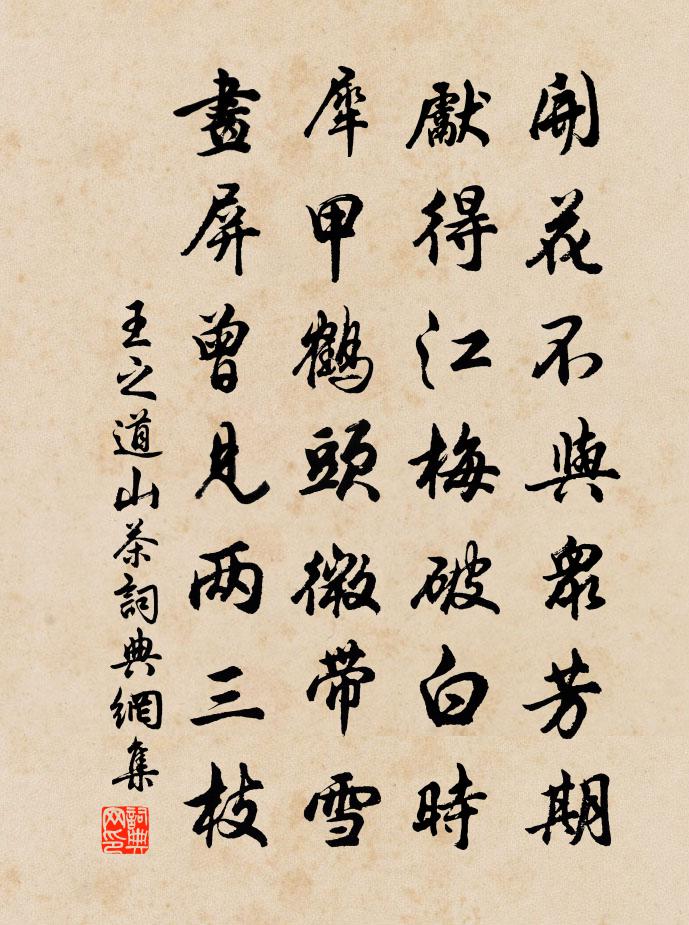 開花不與衆芳期
獻得江梅破白時
犀甲鶴頭微带雪
畫屏曾見两三枝
王之道山茶詞典網集
詞典网印